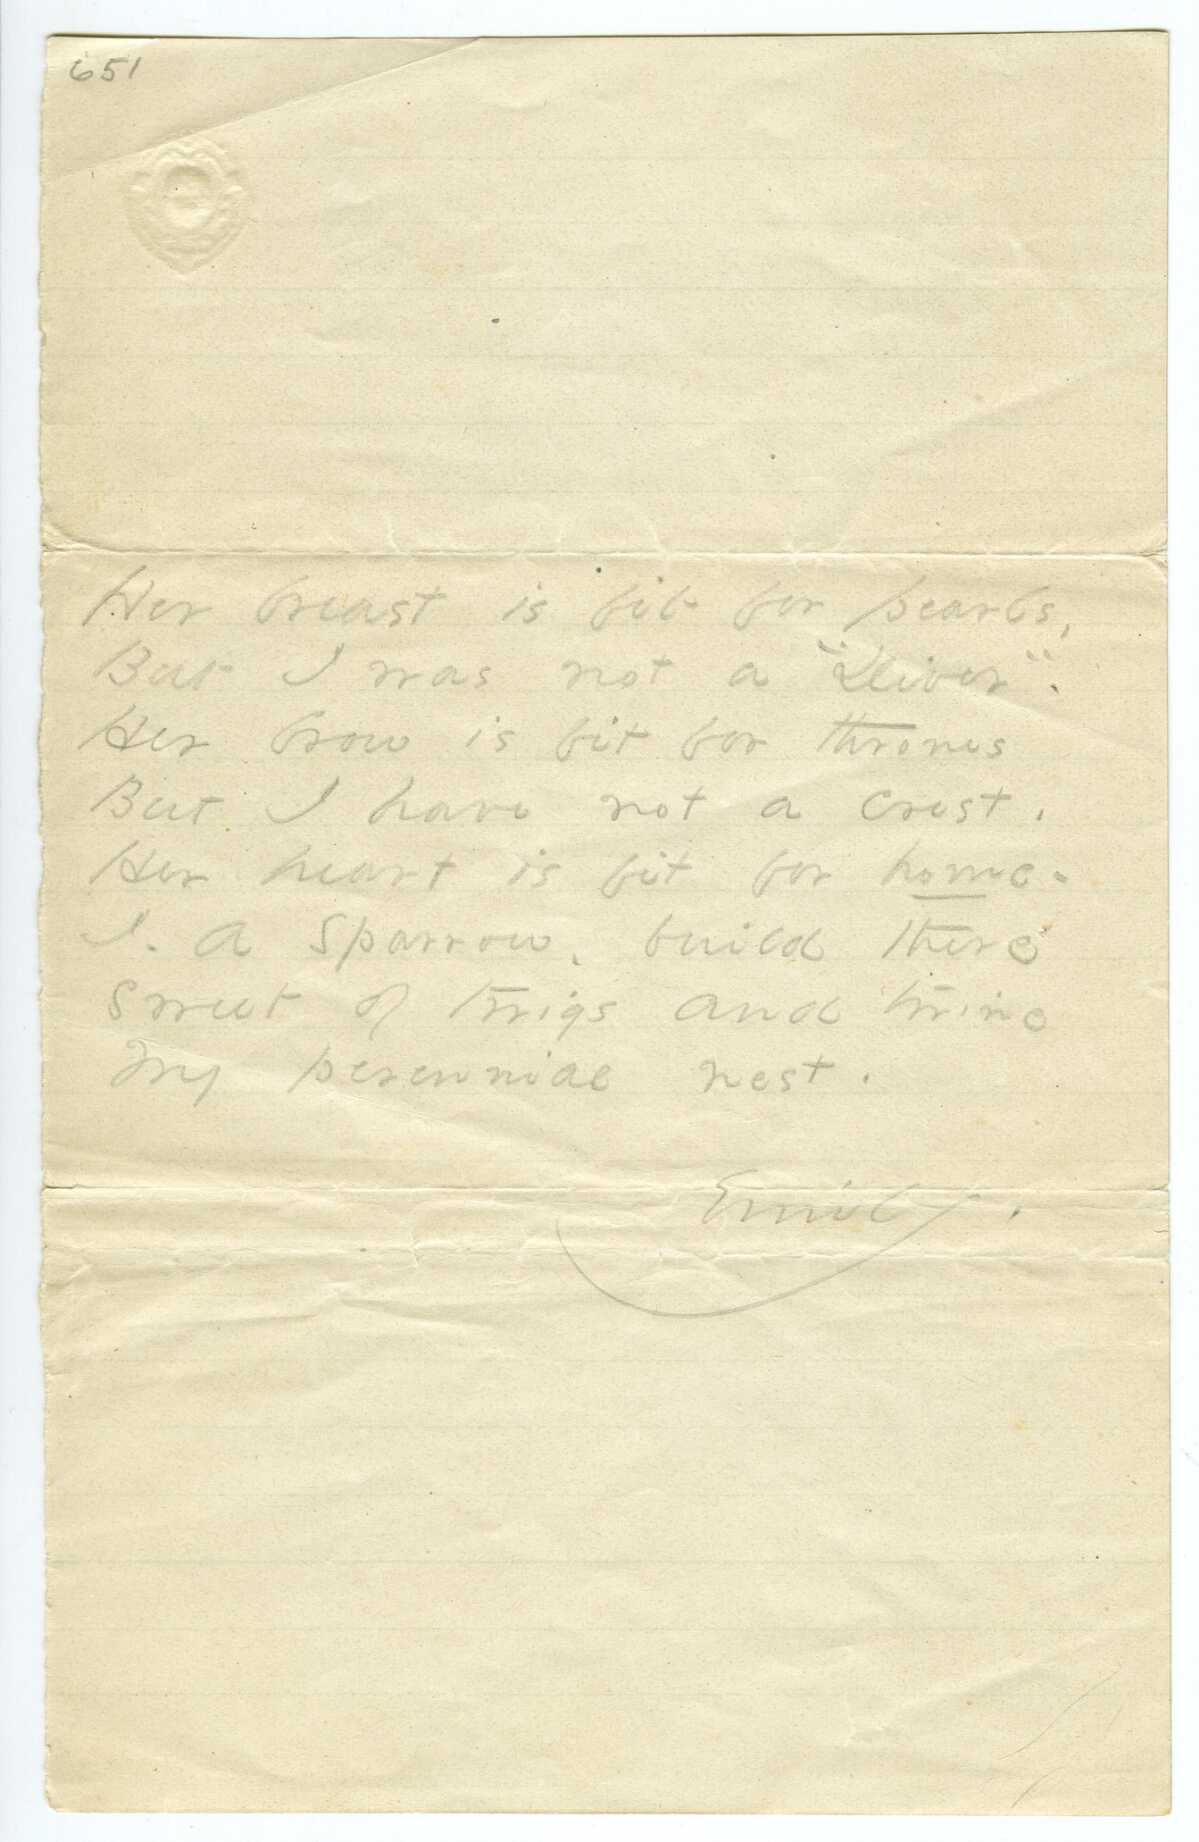 651
Her breast is fit for pearls,
But I was not a "Diver".
Her brow is fit for thrones
But I have not a crest.
Her heart is fit for home-
I. a Sparrow, build there
Sweet of twigs and twine
My perennial nest.
Emily.